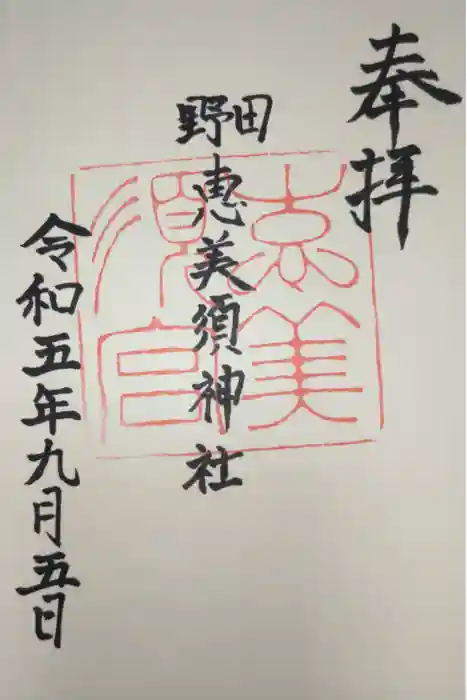 奉拝
野田
恵美須神社
令和五年九月五日
恵美
須宮